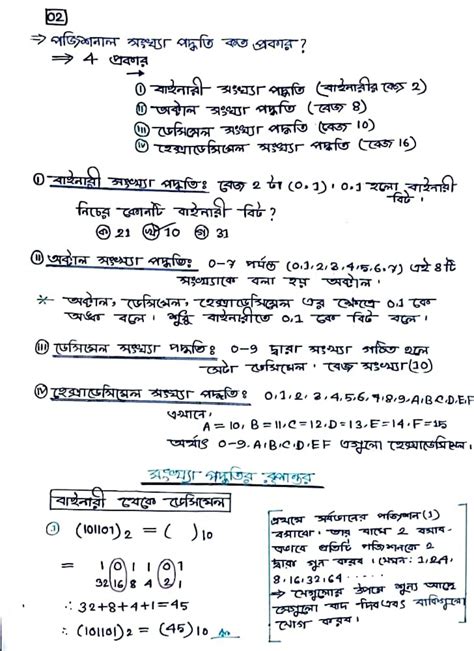 02
⇒ পজিশনাল সংখ্যা পদ্ধতি কত প্রকার?
⇒ 4 প্রকার
→
① বাইনারী সংখ্যা পদ্ধতি (বাইনারীর বেজ 2)
⑪ অক্টাল সংখ্যা পদ্ধতি (বেজ 8)
⑪⑪ ডেসিমেল সংখ্যা পদ্ধতি (বেজ 10)
Ⓘⓥ হেক্সাডেসিমেল সংখ্যা পদ্ধতি (বেজ 16)
① বাইনারী সংখ্যা পদ্ধতিঃ বেজ 2 টা (0,1) । 0,1 হলো বাইনারী
বিট ।
নিচের কোনটি বাইনারী বিট ?
ক 21 খ 10 গ 31
⑪ অক্টাল সংখ্যা পদ্ধতিঃ 0-7 পর্যন্ত (0,1,2,3,4,5,6,7) এই 8 টি
সংখ্যাকে বলা হয় অক্টাল ।
* অক্টাল, ডেসিমেল, হেক্সাডেসিমেল এর ক্ষেত্রে 0,1 কে
অঙ্ক বলে । শুধু বাইনারীতে 0,1 কে বিট বলে ।
iii ডেসিমেল সংখ্যা পদ্ধতিঃ 0-9 দ্বারা সংখ্যা গঠিত হলে
সেটা ডেসিমেল । বেজ সংখ্যা (10)
iv হেক্সাডেসিমেল সংখ্যা পদ্ধতিঃ 0,1,2,3,4,5,6,7,8,9,A,B,C,D,E,F
এখানে,
A = 10, B = 11, C = 12, D = 13, E = 14, F = 15
অর্থাৎ 0-9, A,B,C,D,E,F এগুলো হেক্সাডেসিমেল ।
সংখ্যা পদ্ধতির রূপান্তর
বাইনারী থেকে ডেসিমেল
① (101101)2 = ( )10
= 1 0 1 1 0 1
32 16 8 4 2 1
∴ 32+8+4+1=45
∴ (101101)2 = (45)10
প্রথমে সর্বডানের পজিশন (1)
বসাবো । তার বামে 2 বসাব-
এভাবে প্রতিটি পজিশনকে 2
দ্বারা গুন করব । যেমন : 1,2,4,
8,16,32,64 .....
→ যেগুলোর উপরে শূন্য আছে
সেগুলো বাদ দিব এবং বাকিগুলো
যোগ করব ।